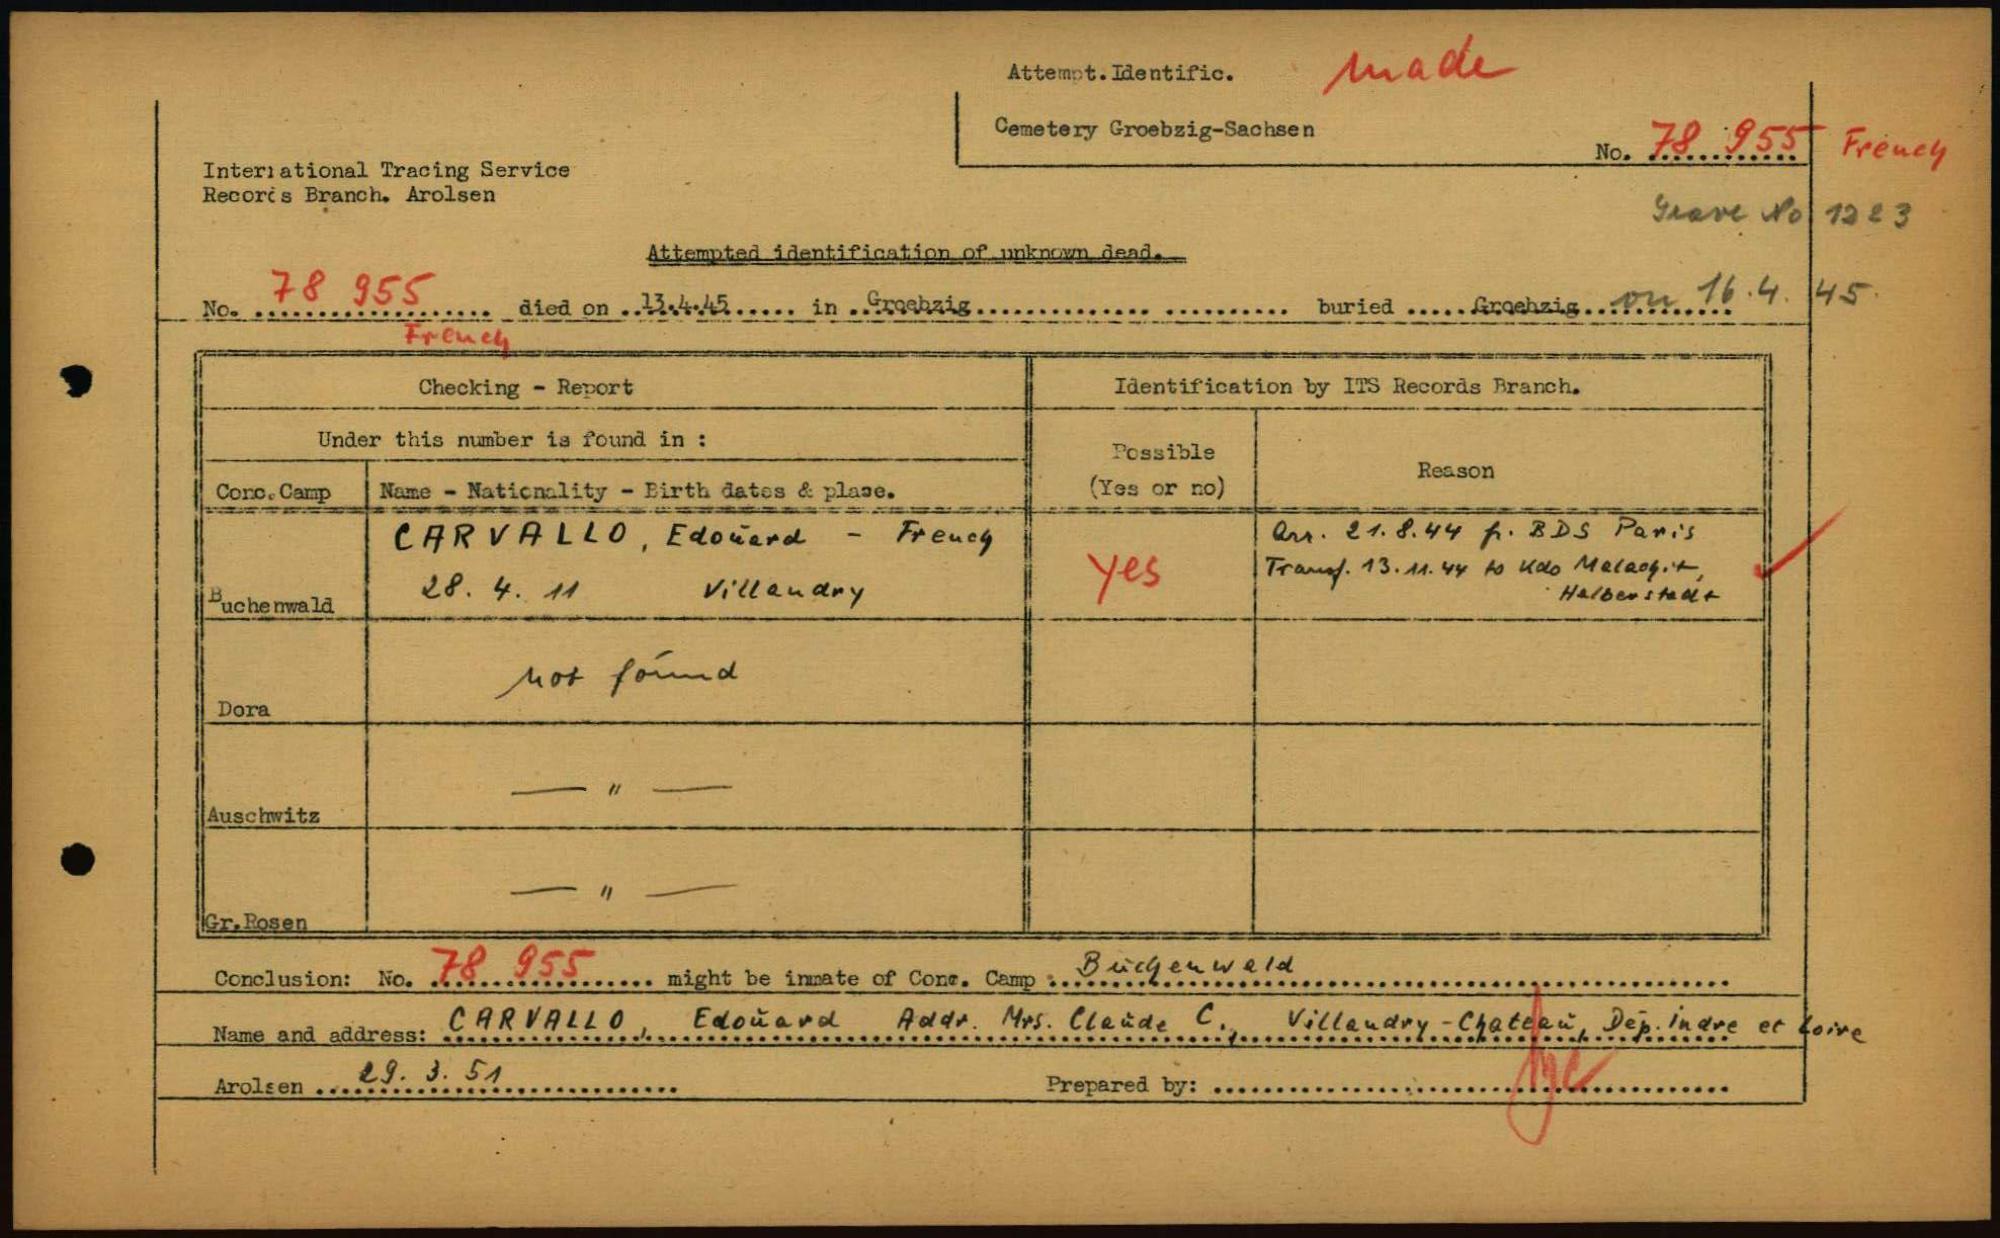 Attempt.Identific. made
Cemetery Groebzig-Sachsen
No. 78 955 French
International Tracing Service
Records Branch. Arolsen
Grave No 1223
Attempted identification of unknown dead.
No. 78 955 died on 13.4.45 in Groebzig buried Groebzig on 16.4.45.
French
Checking - Report
Identification by ITS Records Branch.
Under this number is found in :
Possible
(Yes or no)
Reason
Conc.Camp
Name - Nationality - Birth dates & place.
CARVALLO, Edoŭard - French
28. 4. 11 Villandry
Buchenwald
yes
Arr. 21.8.44 fr. BDS Paris
Transf. 13.11.44 to Kdo Malachit,
Halberstadt
not foŭnd
Dora
— " —
Auschwitz
— " —
Gr.Rosen
Conclusion: No. 78 955 might be inmate of Conc. Camp : Bŭchenwald
Name and address: CARVALLO, Edoŭard Addr. Mrs. Claŭde C., Villandry-Chateaŭ, Dép. Indre et Loire
Arolsen 29. 3. 51
Prepared by: